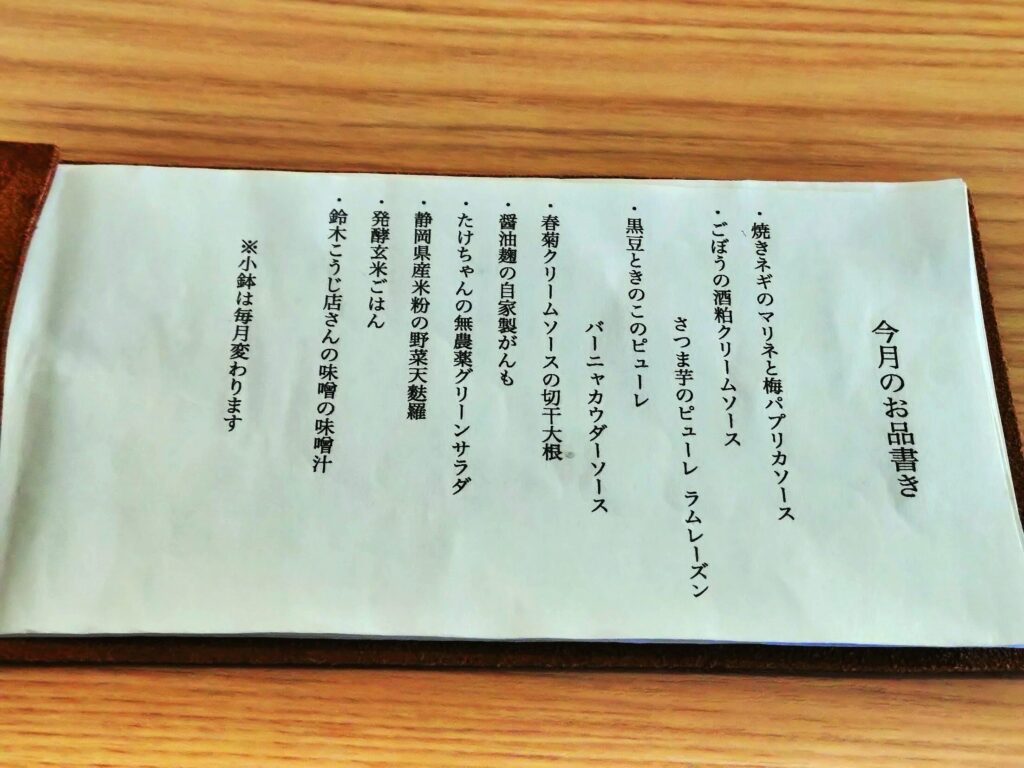 今月のお品書き
・焼きネギのマリネと梅パプリカソース
・ごぼうの酒粕クリームソース
さつま芋のピューレ ラムレーズン
・黒豆ときのこのピューレ
バーニャカウダーソース
・春菊クリームソースの切干大根
・醤油麹の自家製がんも
・たけちゃんの無農薬グリーンサラダ
・静岡県産米粉の野菜天麩羅
・発酵玄米ごはん
・鈴木こうじ店さんの味噌の味噌汁
※小鉢は毎月変わります